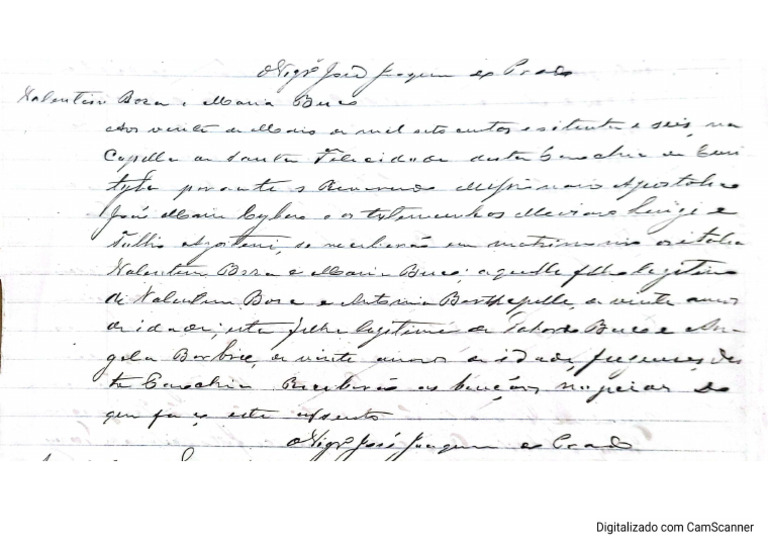 O Vigrº José Joaquim do Prado
Valentim Boza e Maria Buco
Aos vinte de Maio de mil oito centos e setenta e seis, na
Capella de Santa Felicidade desta Parochia de Curi
tyba perante o Reverendo Missionario Apostolico
José Maria e as testemunhas Luigi e
Tullio se receberão em matrimonio os italia
Valentim Boza e Maria Buco; aquelle filho legitimo
de Valentim Boza e Antonia de vinte annos
de idade; esta filha legitima de Buco e An
gela de vinte annos de idade, freguezes des
ta Parochia Receberão as bençãos nupciaes do
que faço este assento
O Vigrº José Joaquim do Prado
Digitalizado com CamScanner